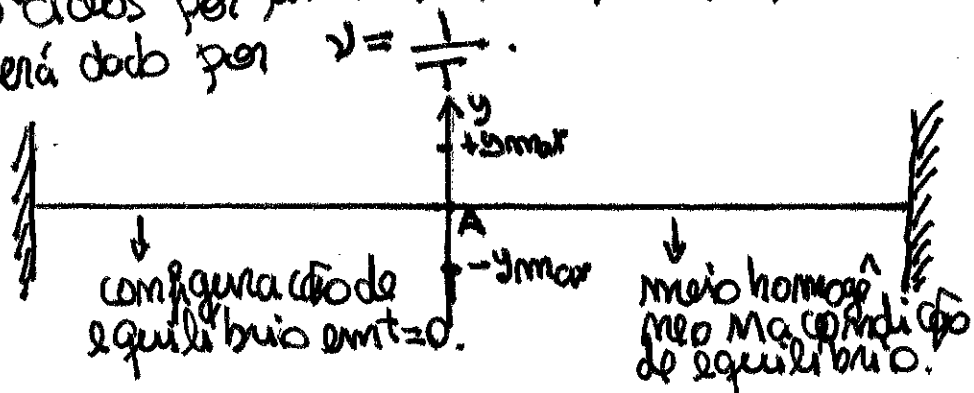 dados por
erá dado por ν = 1/T.
y
+ymax
A
-ymax
configuração de
equilíbrio em t=0.
meio homogê
neo na condição
de equilíbrio.